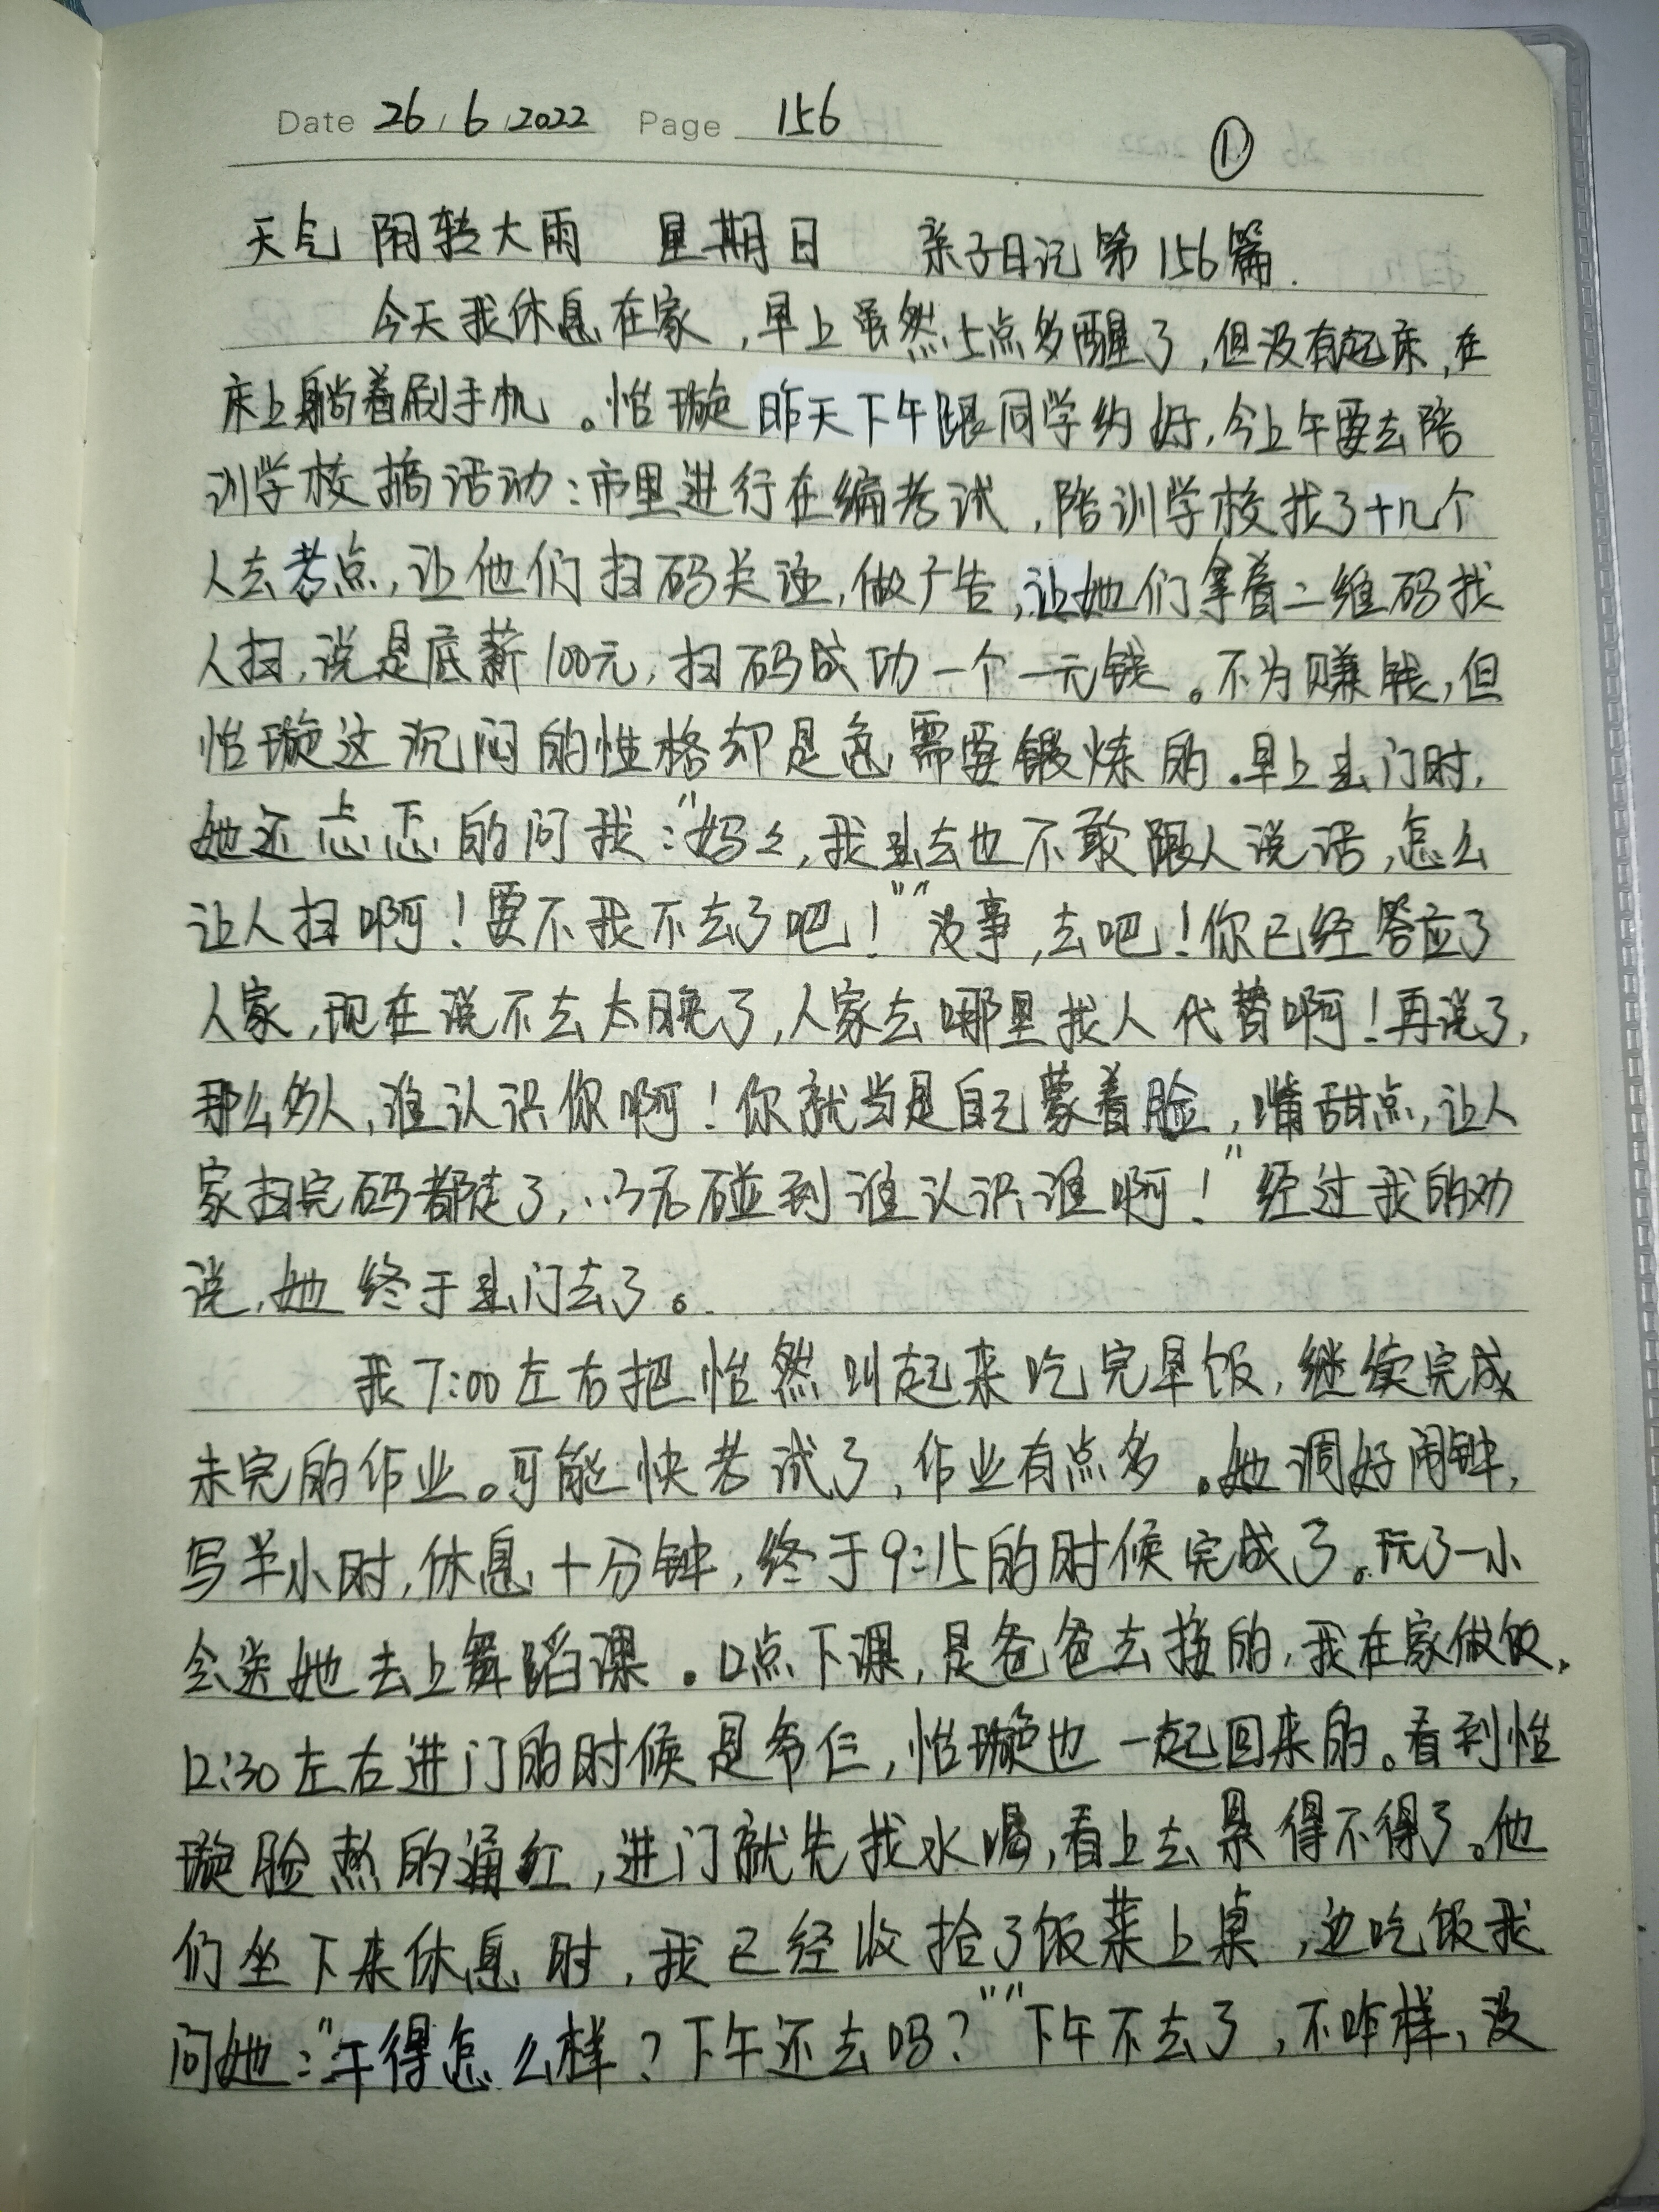 Date 26 / 6 / 2022 Page 156
①
天气 阴转大雨 星期日 亲子日记第156篇.
今天我休息在家,早上虽然七点多醒了,但没有起床,在
床上躺着刷手机。怡璇昨天下午跟同学约好,今上午要去陪
训学校搞活动:市里进行在编考试,陪训学校找了十几个
人去考点,让他们扫码关注,做广告,让她们拿着二维码找
人扫,说是底薪100元,扫码成功一个一元钱。不为赚钱,但
怡璇这沉闷的性格却是急需要锻炼的。早上出门时,
她还忐忑的问我:"妈々,我出去也不敢跟人说话,怎么
让人扫啊!要不我不去了吧!""没事,去吧!你已经答应了
人家,现在说不去太晚了,人家去哪里找人代替啊!再说了,
那么多人,谁认识你啊!你就当是自己蒙着脸,嘴甜点,让人
家扫完码都走了,以后碰到谁认识谁啊!"经过我的劝
说,她终于出门去了。
我7:00左右把怡然叫起来吃完早饭,继续完成
未完的作业。可能快考试了,作业有点多。她调好闹钟,
写半小时,休息十分钟,终于9:15的时候完成了。玩了一小
会送她去上舞蹈课。12点下课,是爸爸去接的,我在家做饭,
12:30左右进门的时候是爷仨,怡璇也一起回来的。看到怡
璇脸热的通红,进门就先找水喝,看上去累得不得了。他
们坐下来休息时,我已经收拾了饭菜上桌,边吃饭我
问她:"干得怎么样?下午还去吗?""下午不去了,不咋样,没